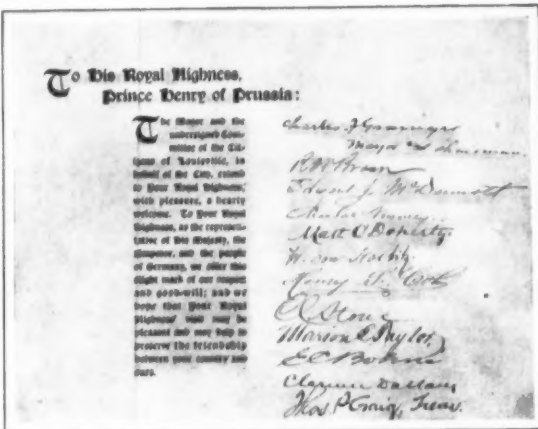 To His Royal Highness,
Prince Henry of Prussia:
The Mayor and the
undersigned Com-
mittee of the Citi-
zens of Louisville, in
behalf of the City, extend
to Your Royal Highness,
with pleasure, a hearty
welcome. To Your Royal
Highness, as the represen-
tative of His Majesty, the
Emperor, and the people
of Germany, we offer this
slight mark of our respect
and good-will; and we
hope that Your Royal
Highness' visit may be
pleasant and may help to
preserve the friendship
between your country and
ours.
Charles F Grainger
Mayor & Chairman.
Edward J. McDermott
Matt O'Doherty.
Marion E Taylor,
E C Bohne
Clarence Dallam,
Thos P Craig, Treas.